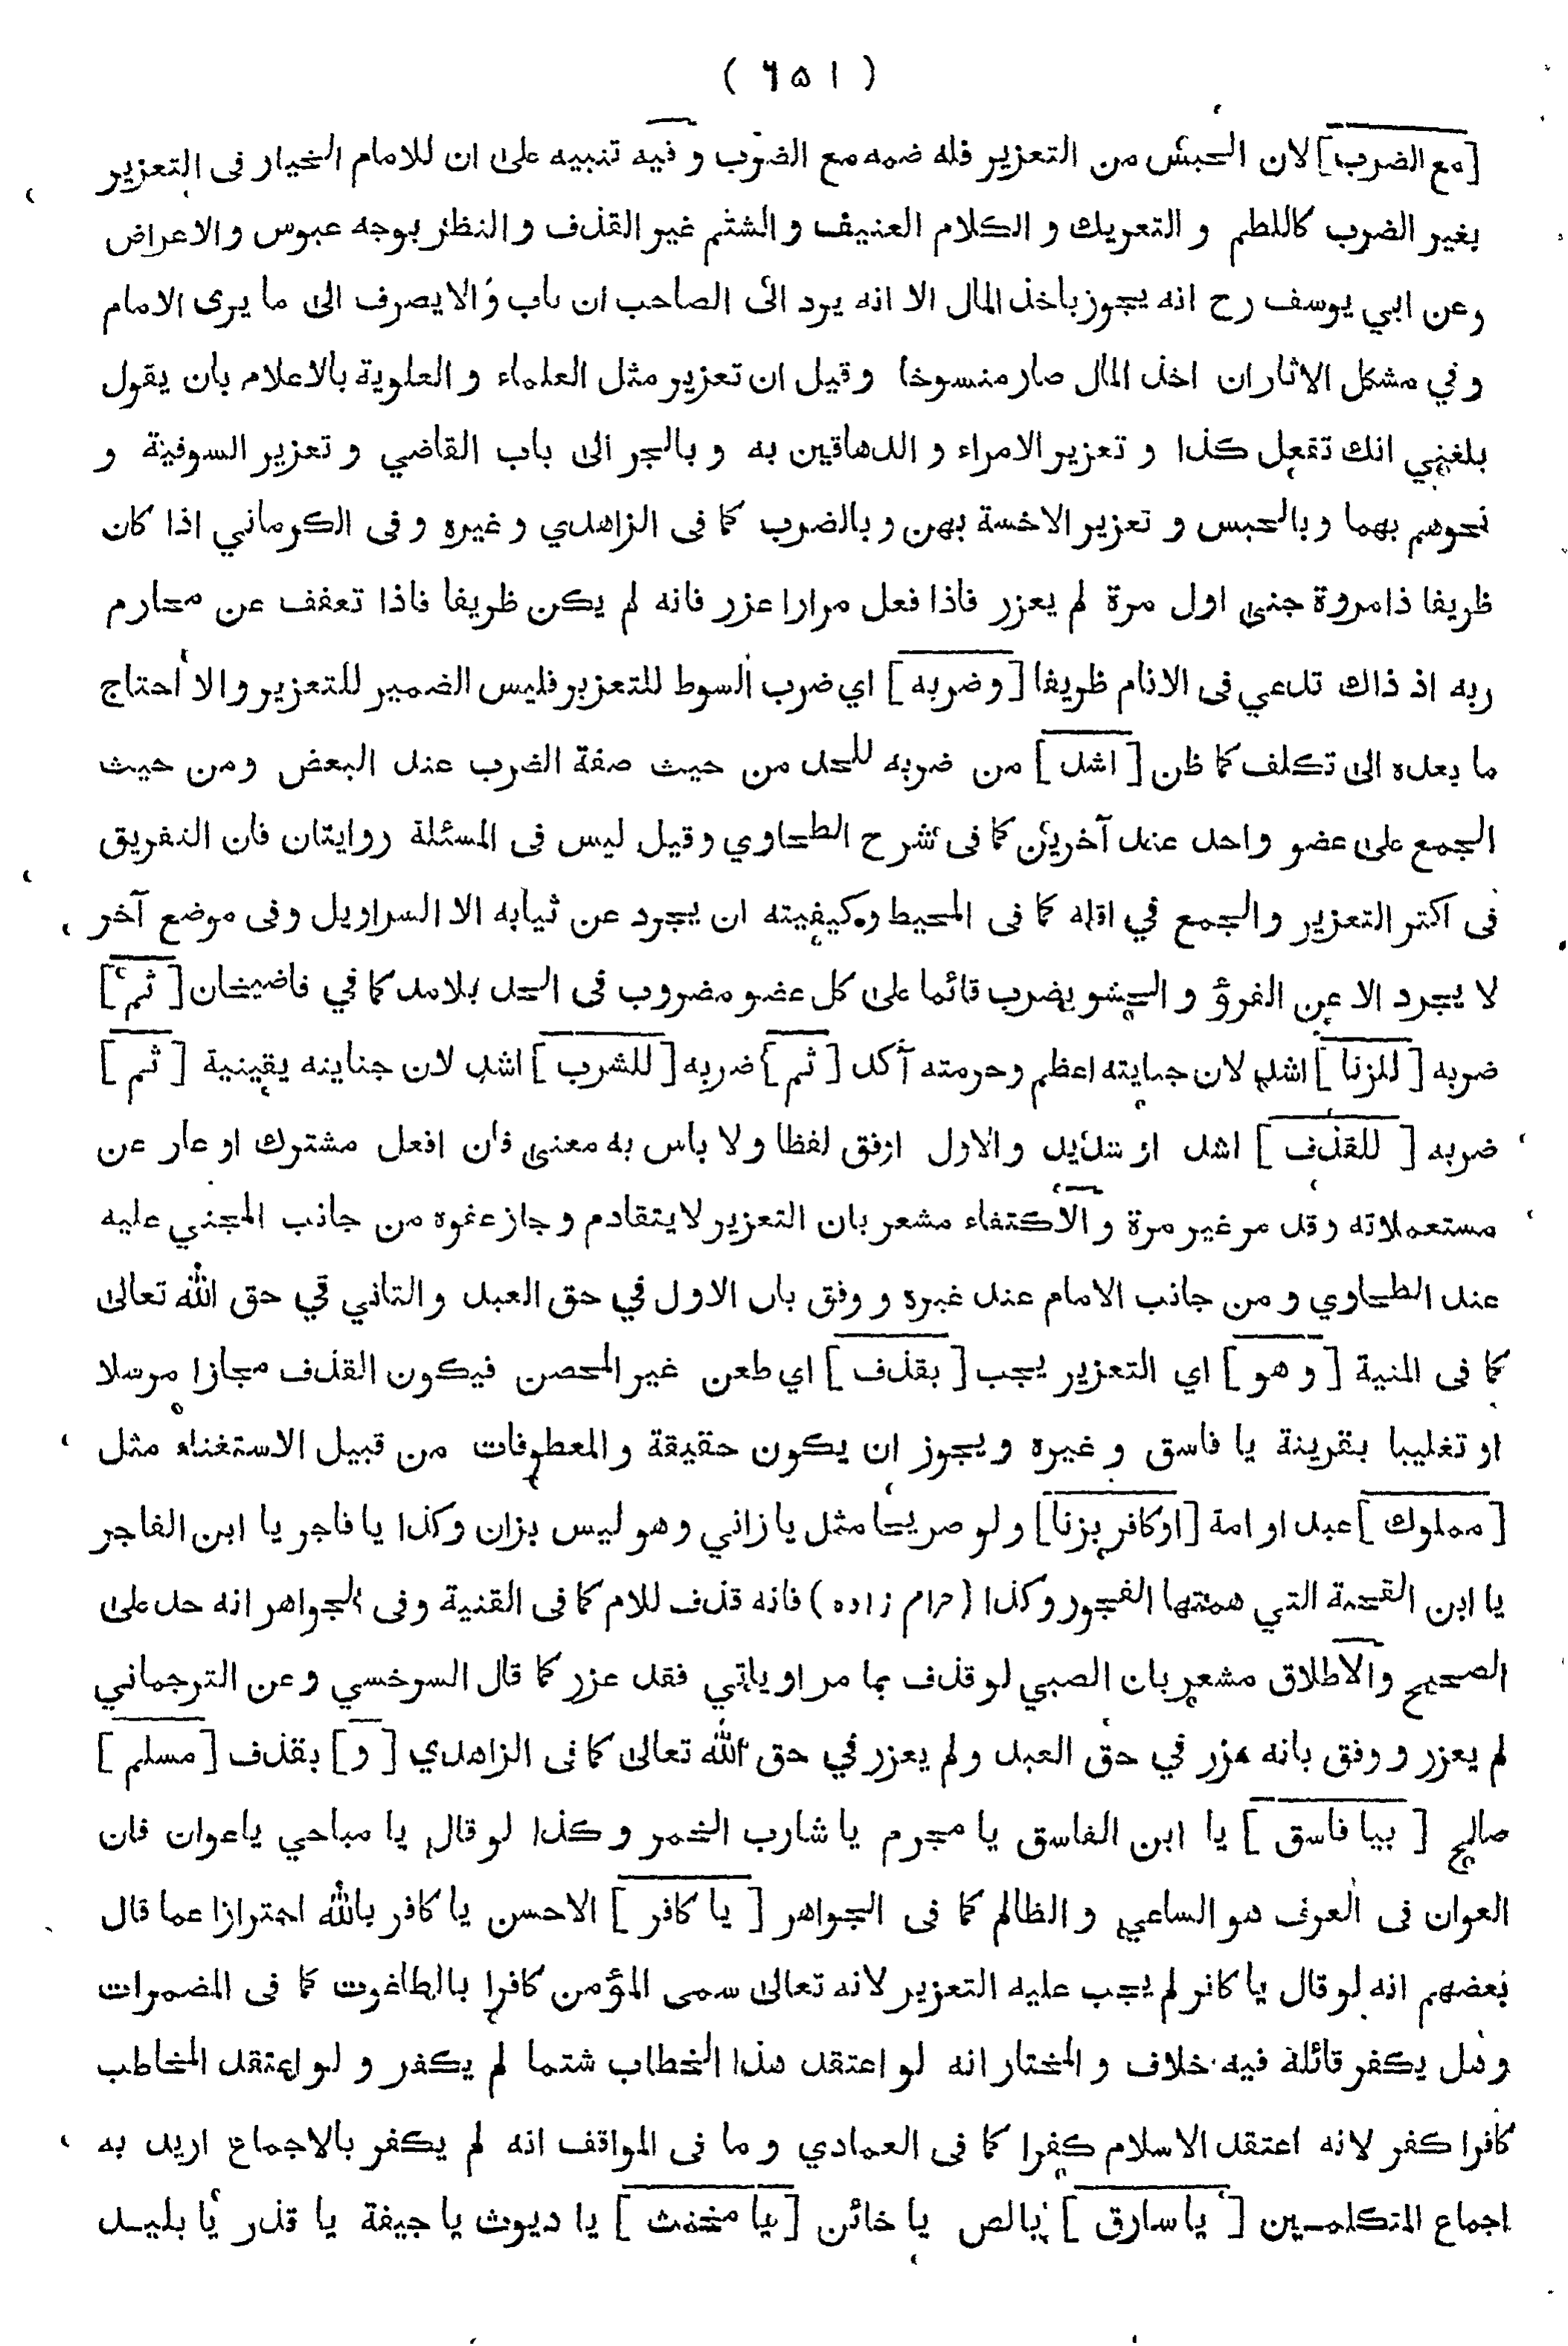 ( ٦٥١ )
[مع الضرب] لان الحبس من التعزير فله ضمه مع الضرب و فيه تنبيه على ان للامام الخيار فى التعزير
بغير الضرب كاللطم و التعريك و الكلام العنيف و الشتم غير القذف و النظر بوجه عبوس و الاعراض
وعن ابي يوسف رح انه يجوز باخذ المال الا انه يرد الى الصاحب ان تاب و الا يصرف الى ما يرى الامام
و في مشكل الاثار ان اخذ المال صار منسوخا وقيل ان تعزير مثل العلماء و العلوية بالاعلام بان يقول
بلغني انك تفعل كذا و تعزير الامراء و الدهاقين به و بالجر الى باب القاضي و تعزير السوقية و
نحوهم بهما و بالحبس و تعزير الاخسة بهن و بالضرب كما فى الزاهدي و غيره و فى الكرماني اذا كان
ظريفا ذا مروة جنى اول مرة لم يعزر فاذا فعل مرارا عزر فانه لم يكن ظريفا فاذا تعفف عن محارم
ربه اذ ذاك تدعي فى الانام ظريفا [و ضربه] اي ضرب السوط للتعزير فليس الضمير للتعزير و الا احتاج
ما بعده الى تكلف كما ظن [اشد] من ضربه للحد من حيث صفة الضرب عند البعض ومن حيث
الجمع على عضو واحد عند آخرين كما فى شرح الطحاوي وقيل ليس فى المسئلة روايتان فان التفريق
فى اكثر التعزير والجمع في اقله كما فى المحيط وكيفيته ان يجرد عن ثيابه الا السراويل وفى موضع آخر
لا يجرد الا عن الفرو و الحشو يضرب قائما على كل عضو مضروب فى الحد بلا مد كما في قاضيخان [ثم]
ضربه [للزنا] اشد لان جنايته اعظم وحرمته آكد [ثم] ضربه [للشرب] اشد لان جنايته يقينية [ثم]
ضربه [للقذف] اشد او شديد والاول اوفق لفظا ولا باس به معنى فان افعل مشترك او عار عن
مستعملاته وقد مر غير مرة و الاكتفاء مشعر بان التعزير لا يتقادم و جاز عفوه من جانب المجني عليه
عند الطحاوي و من جانب الامام عند غيره و وفق بان الاول في حق العبد والثاني في حق الله تعالى
كما فى المنية [و هو] اي التعزير يجب [بقذف] اي طعن غير المحصن فيكون القذف مجازا مرسلا
او تغليبا بقرينة يا فاسق و غيره و يجوز ان يكون حقيقة و المعطوفات من قبيل الاستغناء مثل
[مملوك] عبد او امة [او كافر بزنا] و لو صريحا مثل يا زاني و هو ليس بزان وكذا يا فاجر يا ابن الفاجر
يا ابن القحبة التي همتها الفجور وكذا (حرام زاده) فانه قذف للام كما فى القنية وفى الجواهر انه حد على
الصحيح والاطلاق مشعر بان الصبي لو قذف بما مر او ياتي فقد عزر كما قال السرخسي وعن الترجماني
لم يعزر و وفق بانه عزر في حق العبد ولم يعزر في حق الله تعالى كما فى الزاهدي [و] بقذف [مسلم]
صالح [بيا فاسق] يا ابن الفاسق يا مجرم يا شارب الخمر و كذا لو قال يا مباحي يا عوان فان
العوان فى العرف هو الساعي و الظالم كما فى الجواهر [يا كافر] الاحسن يا كافر بالله احترازا عما قال
بعضهم انه لو قال يا كافر لم يجب عليه التعزير لانه تعالى سمى المؤمن كافرا بالطاغوت كما فى المضمرات
و هل يكفر قائلة فيه خلاف و المختار انه لو اعتقد هذا الخطاب شتما لم يكفر و لو اعتقد المخاطب
كافرا كفر لانه اعتقد الاسلام كفرا كما فى العمادي و ما فى المواقف انه لم يكفر بالاجماع اريد به
اجماع المتكلمين [يا سارق] يا لص يا خائن [يا مخنث] يا ديوث يا جيفة يا قذر يا بليد